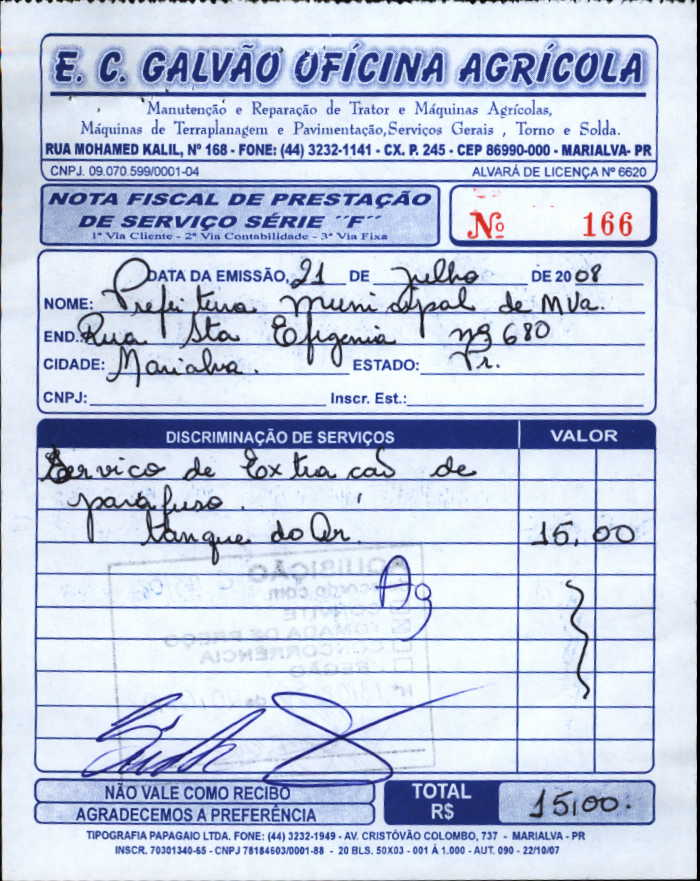 E. C. GALVÃO OFÍCINA AGRÍCOLA
Manutenção e Reparação de Trator e Máquinas Agrícolas,
Máquinas de Terraplanagem e Pavimentação,Serviços Gerais , Torno e Solda.
RUA MOHAMED KALIL, Nº 168 - FONE: (44) 3232-1141 - CX. P. 245 - CEP 86990-000 - MARIALVA- PR
CNPJ. 09.070.599/0001-04 ALVARÁ DE LICENÇA Nº 6620
NOTA FISCAL DE PRESTAÇÃO
DE SERVIÇO SÉRIE ´´F´´
1ª Via Cliente - 2ª Via Contabilidade - 3ª Via Fixa
Nº 166
DATA DA EMISSÃO, 21 DE Julho DE 2008
NOME: Prefeitura Municipal de Mva.
END.: Rua Sta Efigenia nº 680
CIDADE: Marialva. ESTADO: Pr.
CNPJ: Inscr. Est.:
DISCRIMINAÇÃO DE SERVIÇOS VALOR
Serviço de Extracão de
parafuso.
tanque do 15,00
AQUISIÇÃO
acordo com
CONVITE
TOMADA DE PREÇO
CONCORRÊNCIA
PREGÃO
NÃO VALE COMO RECIBO
AGRADECEMOS A PREFERÊNCIA
TOTAL
R$ 15,00.
TIPOGRAFIA PAPAGAIO LTDA. FONE: (44) 3232-1949 - AV. CRISTÓVÃO COLOMBO, 737 - MARIALVA - PR
INSCR. 70301340-65 - CNPJ 78184603/0001-88 - 20 BLS. 50X03 - 001 Á 1.000 - AUT. 090 - 22/10/07